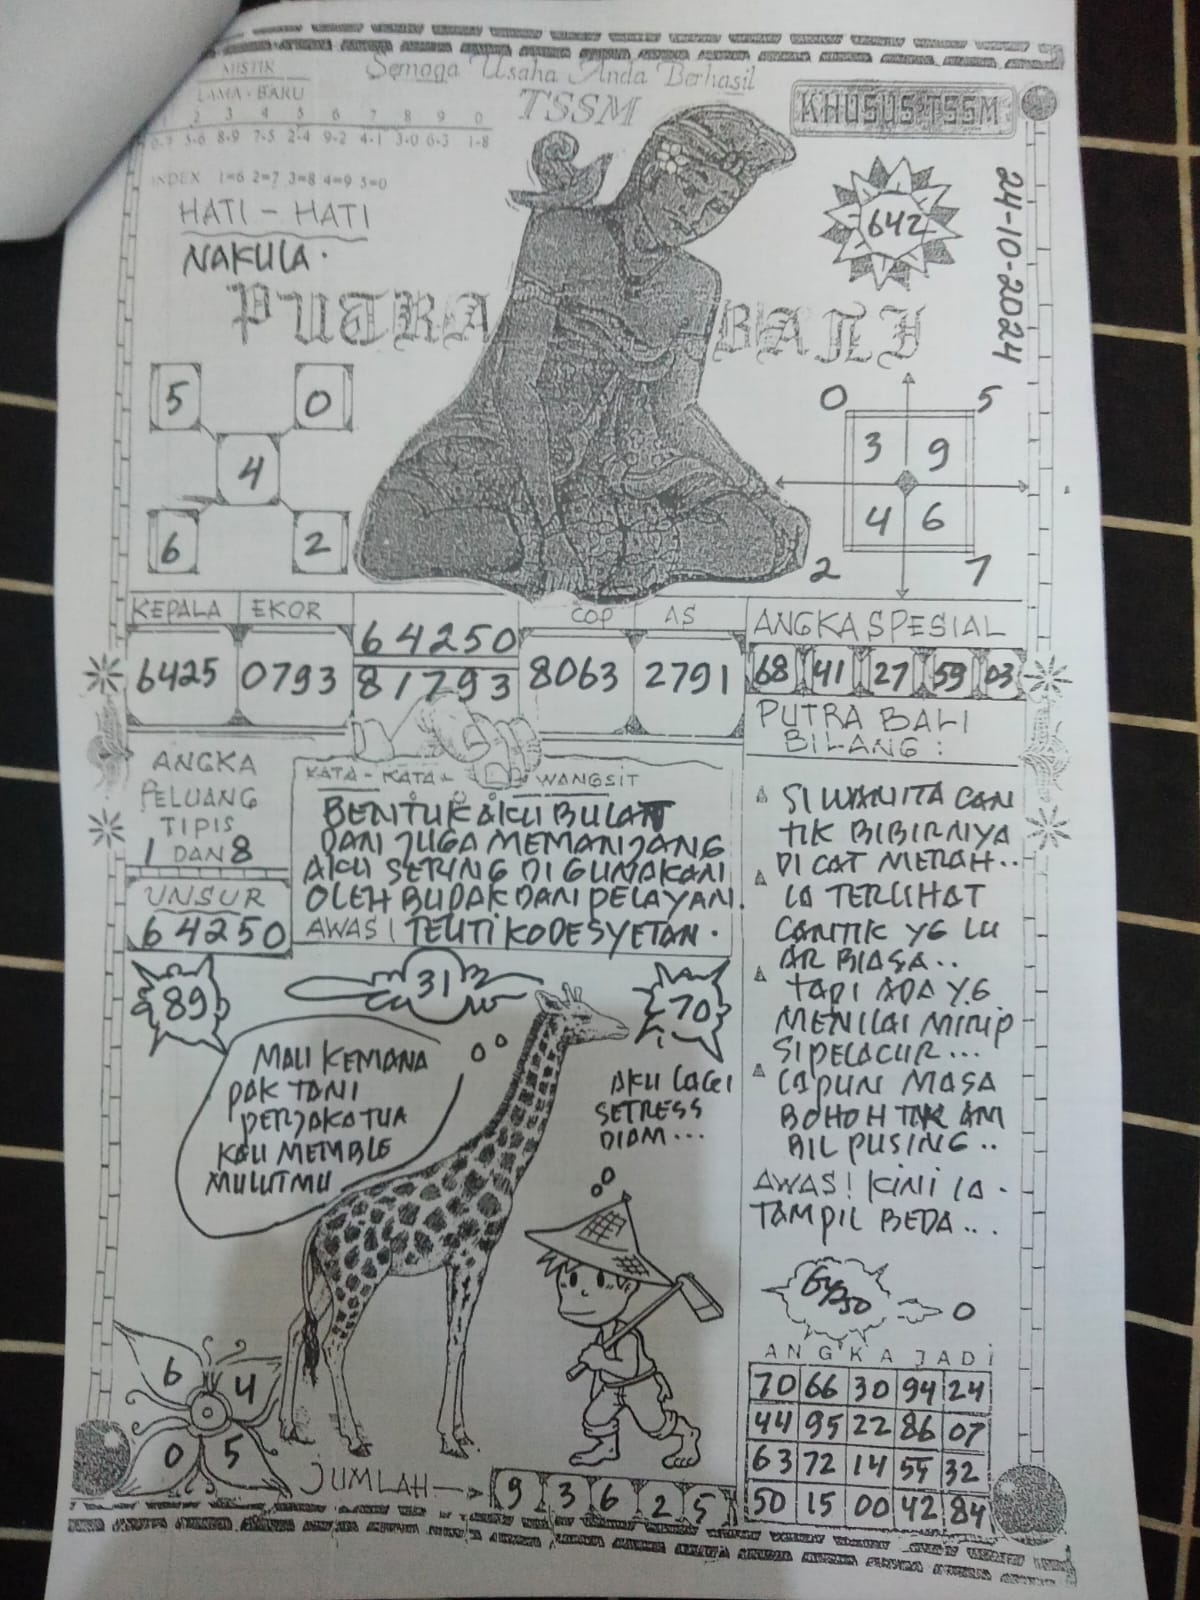 MISTIK
LAMA - BARU
2 3 4 5 6 7 8 9 0
5-6 8-9 7-5 2-4 9-2 4-1 3-0 6-3 1-8
INDEX 1=6 2=7 3=8 4=9 5=0
Semoga Usaha Anda Berhasil
TSSM
KHUSUS TSSM
24-10-2024
642
HATI - HATI
NAKULA.
PUTRA BALI
5 0
4
6 2
0 5
3 9
4 6
2 7
KEPALA EKOR
6425 0793
64250
81793
COP AS
8063 2791
ANGKA SPESIAL
68 41 27 59 03
ANGKA
PELUANG
TIPIS
1 DAN 8
UNSUR
64250
KATA - KATA WANGSIT
BENTUK AKU BULAT
DAN JUGA MEMANJANG
AKU SERING DI GUNAKAN
OLEH BUDAK DAN PELAYAN.
AWAS! TELITI KODE SYETAN.
PUTRA BALI
BILANG :
SI WANITA CAN
TIK BIBIRNYA
DI CAT MERAH..
IA TERLIHAT
CANTIK YG LU
AR BIASA..
TAPI ADA YG
MENILAI MIRIP
SI PELACUR...
IAPUN MASA
BOHOH TAK AM
BIL PUSING..
AWAS! KINI IA.
TAMPIL BEDA...
89
31
70
MAU KEMANA
PAK TANI
PERJAKA TUA
KAU MEMBLE
MULUTMU
AKU LAGI
SETRESS
DIAM...
0
ANGKA JADI
70 66 30 94 24
44 95 22 86 07
63 72 14 55 32
50 15 00 42 84
6 4
0 5
JUMLAH
9 3 6 2 5